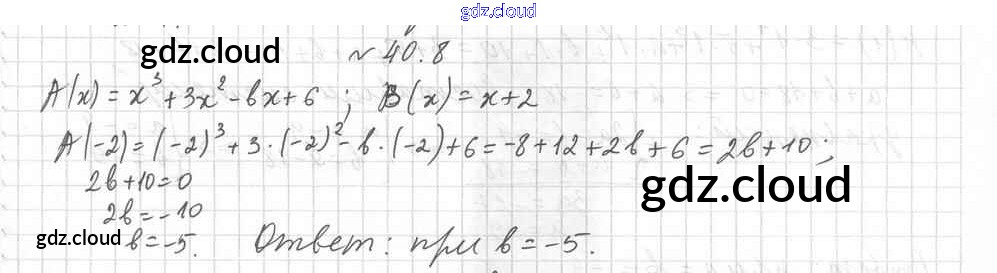 gdz.cloud
gdz.cloud
№ 40.8
A(x) = x³ + 3x² - bx + 6 ; B(x) = x + 2
A(-2) = (-2)³ + 3 · (-2)² - b · (-2) + 6 = -8 + 12 + 2b + 6 = 2b + 10 ;
2b + 10 = 0
gdz.cloud
2b = -10
gdz.cloud
b = -5. Ответ: при b = -5.